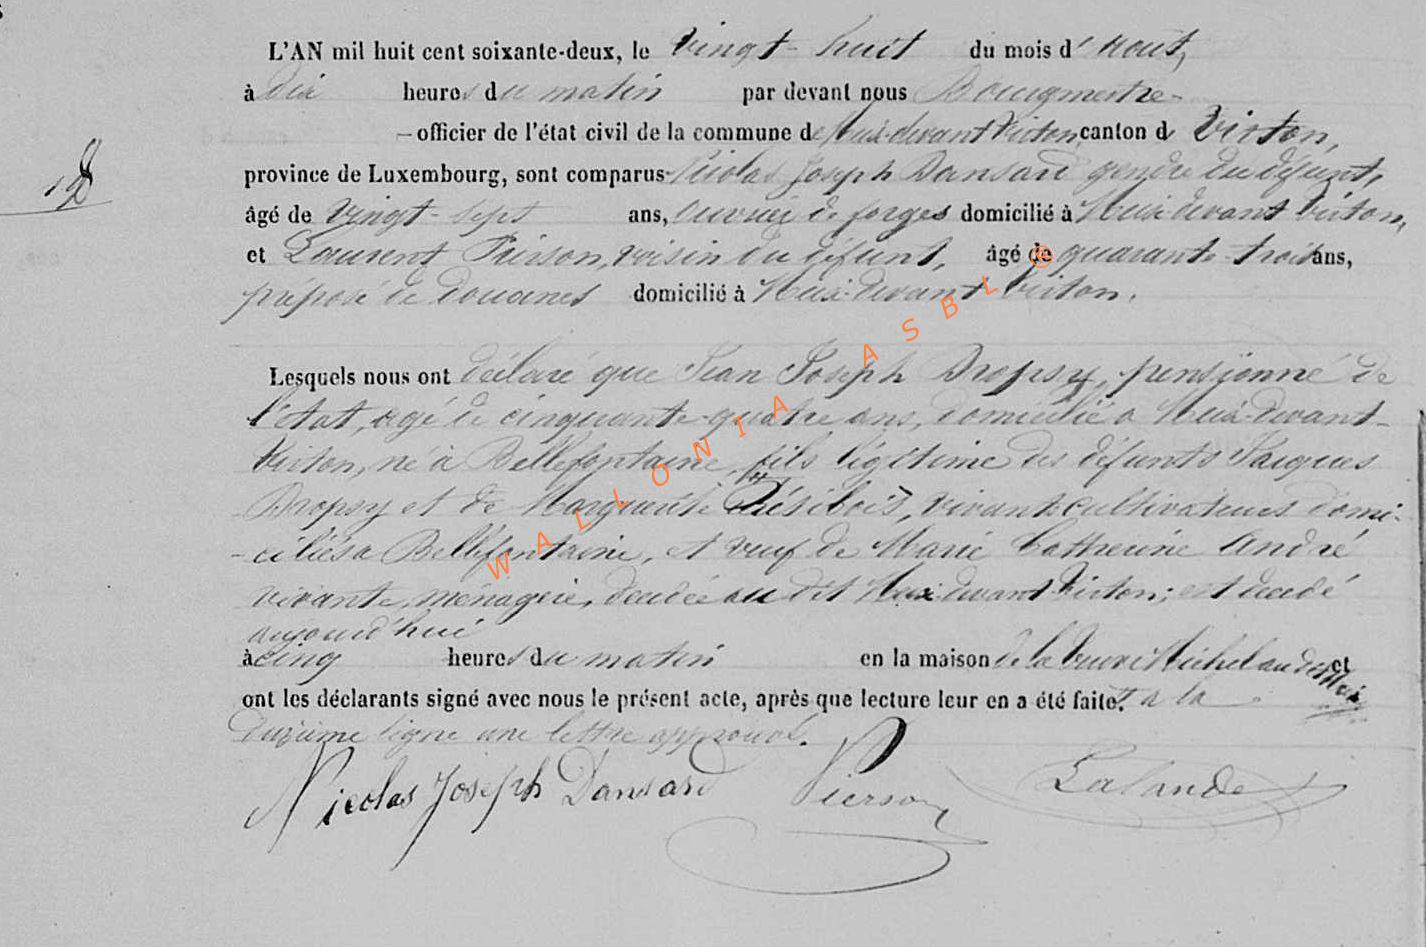 18
L'AN mil huit cent soixante-deux, le vingt-huit du mois d'Aout,
à dix heures du matin par devant nous Bourgmestre
officier de l'état civil de la commune de Meix-devant Virton, canton d Virton,
province de Luxembourg, sont comparus Nicolas Joseph Dansard gendre du défunt,
âgé de vingt-sept ans, ouvrier de forges domicilié à Meix devant Virton,
et Laurent Pierson, voisin du défunt, âgé de quarante-trois ans,
préposé de douanes domicilié à Meix-devant Virton.
Lesquels nous ont déclaré que Jean Joseph Dropsy, pensionné de
l'état, agé de cinquante-quatre ans, domicilié a Meix-devant-
Virton, né à Bellefontaine, fils légitime des défunts Jacques
Dropsy et de Marguerite Résibois, vivants cultivateurs domi-
-ciliés a Bellefontaine, et veuf de Marie Catherine André
vivante, ménagère, décédée au dit Meix devant-Virton; est décédé
aujourd'hui
à cinq heures du matin en la maison de la veuve Michel au dit Meix et
ont les déclarants signé avec nous le présent acte, après que lecture leur en a été faite. a la
ligne une lettre
Nicolas Joseph Dansard Pierson Lalande
WALLONIA ASBL ®